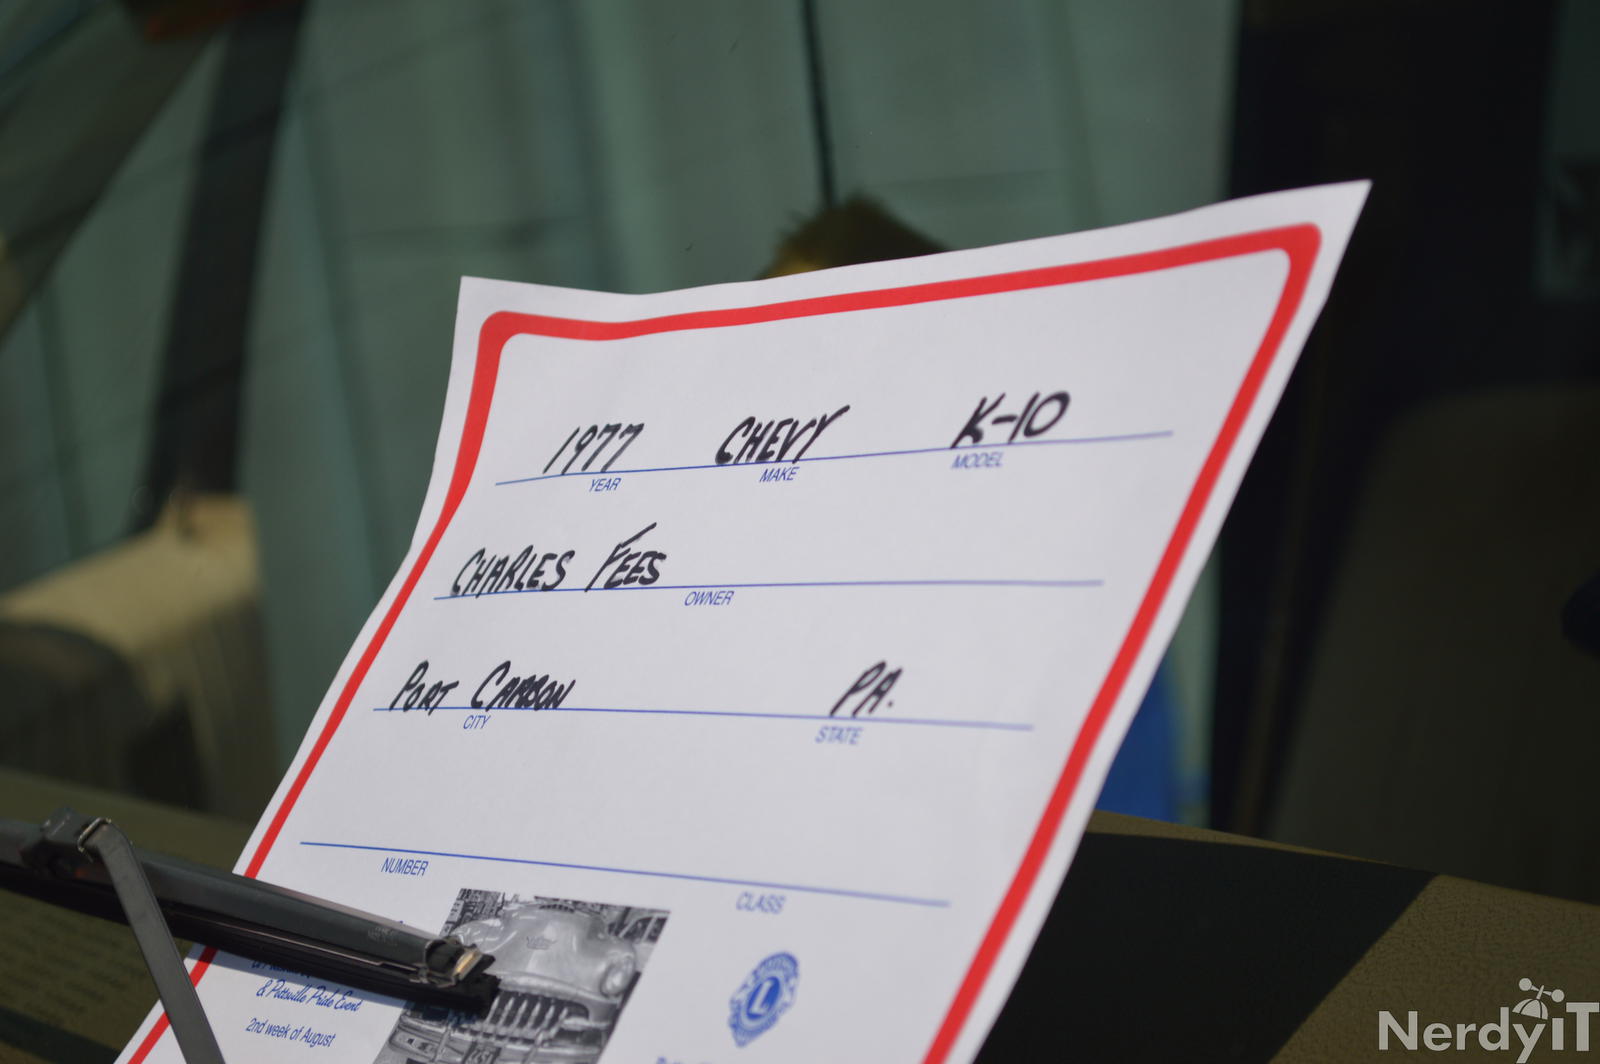 1977 CHEVY K-10
YEAR MAKE MODEL
CHARLES FEES
OWNER
PORT CARBON PA.
CITY STATE
NUMBER CLASS
& Pottsville Pride Event
2nd week of August
L
NerdyiT